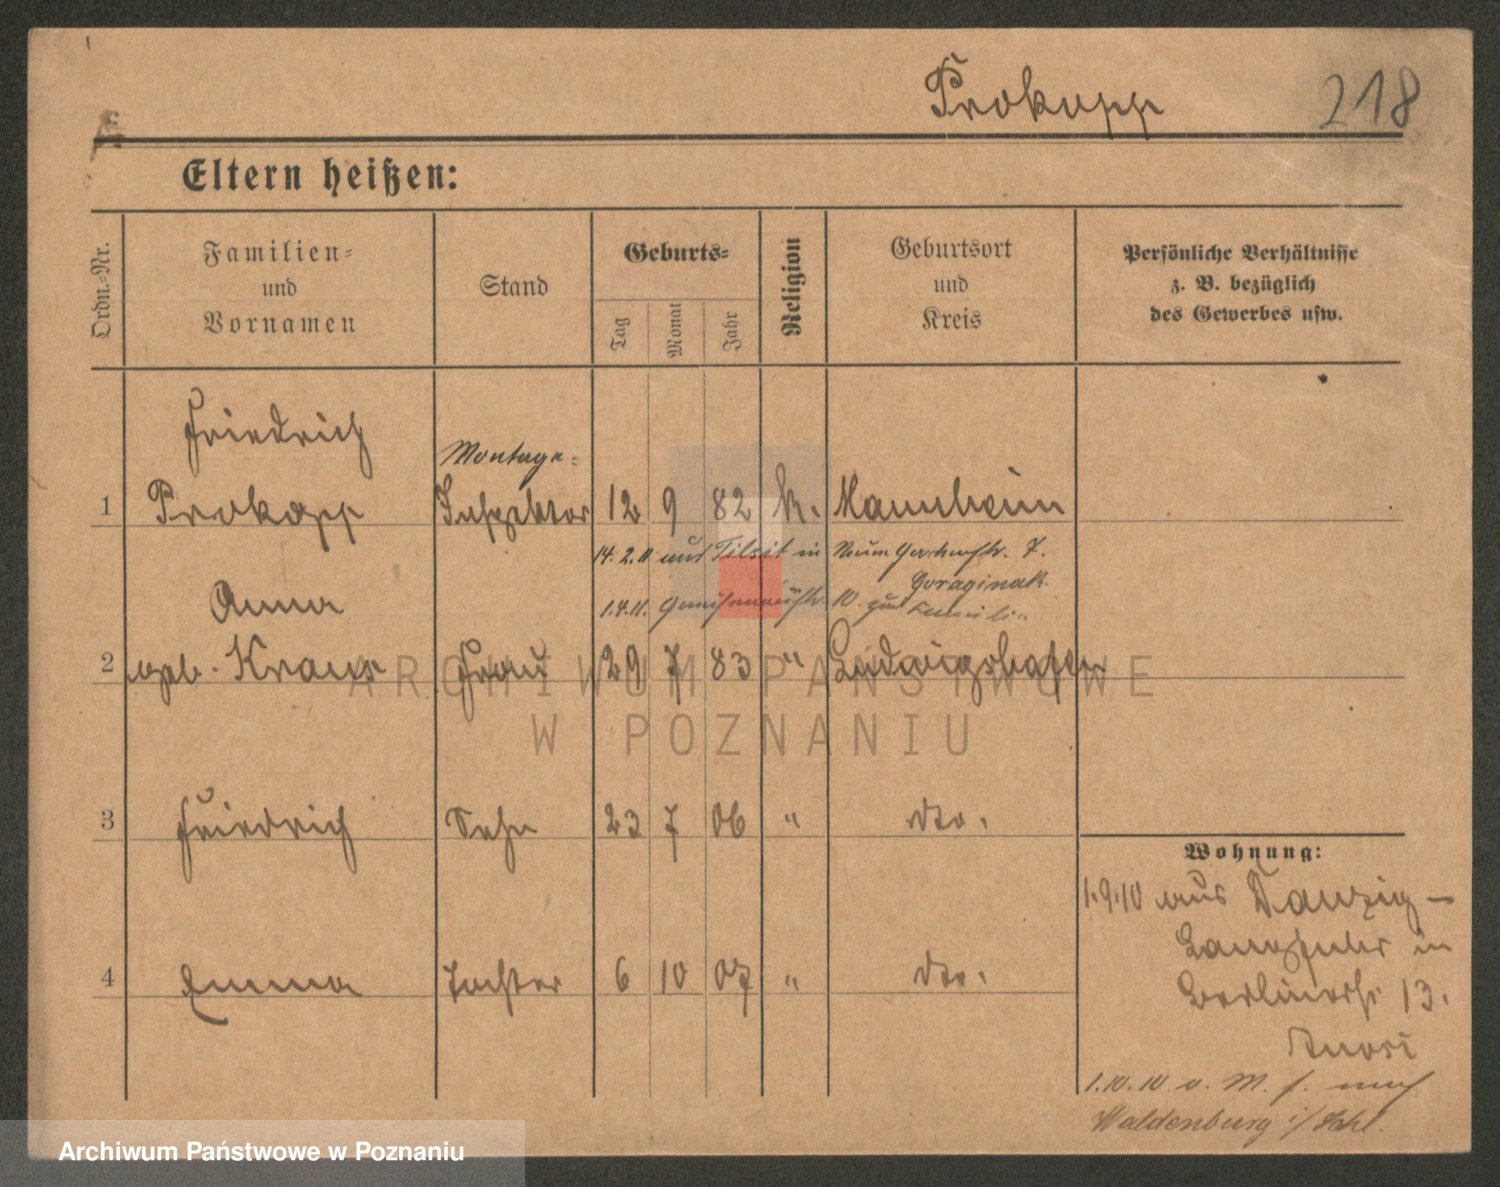 Prokopp 218
Eltern heißen:
Ordn.-Nr.
Familien-
und
Vornamen
Stand
Geburts-
Tag
Monat
Jahr
Religion
Geburtsort
und
Kreis
Persönliche Verhältnisse
z. B. bezüglich
des Gewerbes usw.
Friedrich
Montage-
1 Prokopp Inspektor 12 9 82 k. Mannheim
14.2.11 aus Tilsit in 7.
Anna
1.4.11. 10. zur
2 geb. Kraus Frau 29 7 83 " Ludwigshafen
3 Friedrich Sohn 23 7 06 " dto.
4 Emma Tochter 6 10 07 " dto.
Wohnung:
1.9.10 aus Danzig-
Langfuhr in
Berlinerstr 13.
1.10.10 v. M. f. nach
Waldenburg i/Schl.
ARCHIWUM PAŃSTWOWE
W POZNANIU
Archiwum Państwowe w Poznaniu